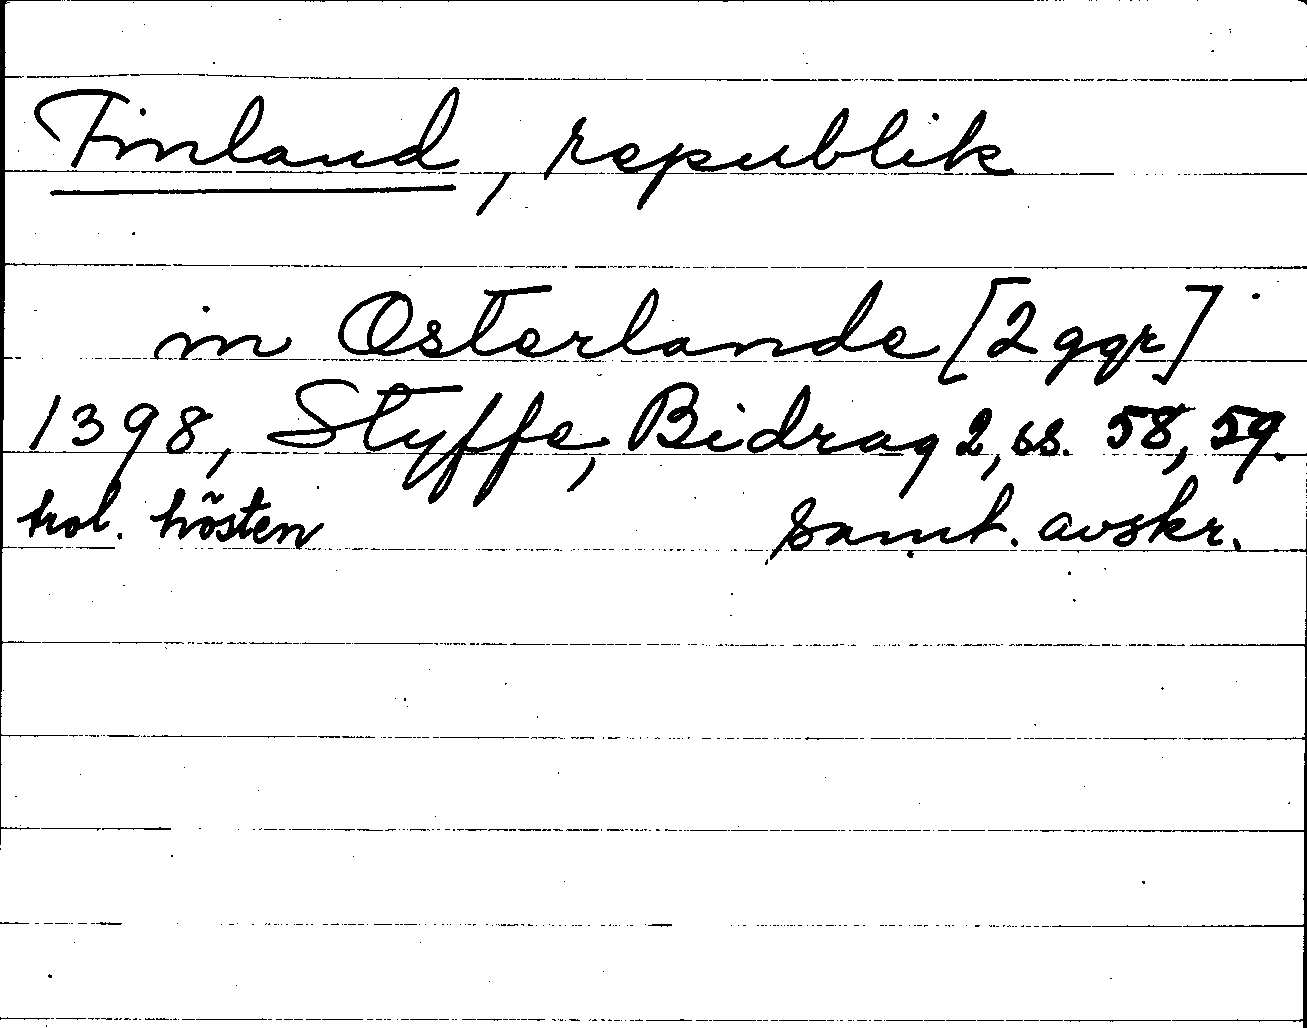 Finland, republik
in Osterlande [2 ggr]
1398, Styffe, Bidrag 2, ss. 58, 59.
trol. hösten samt. avskr.